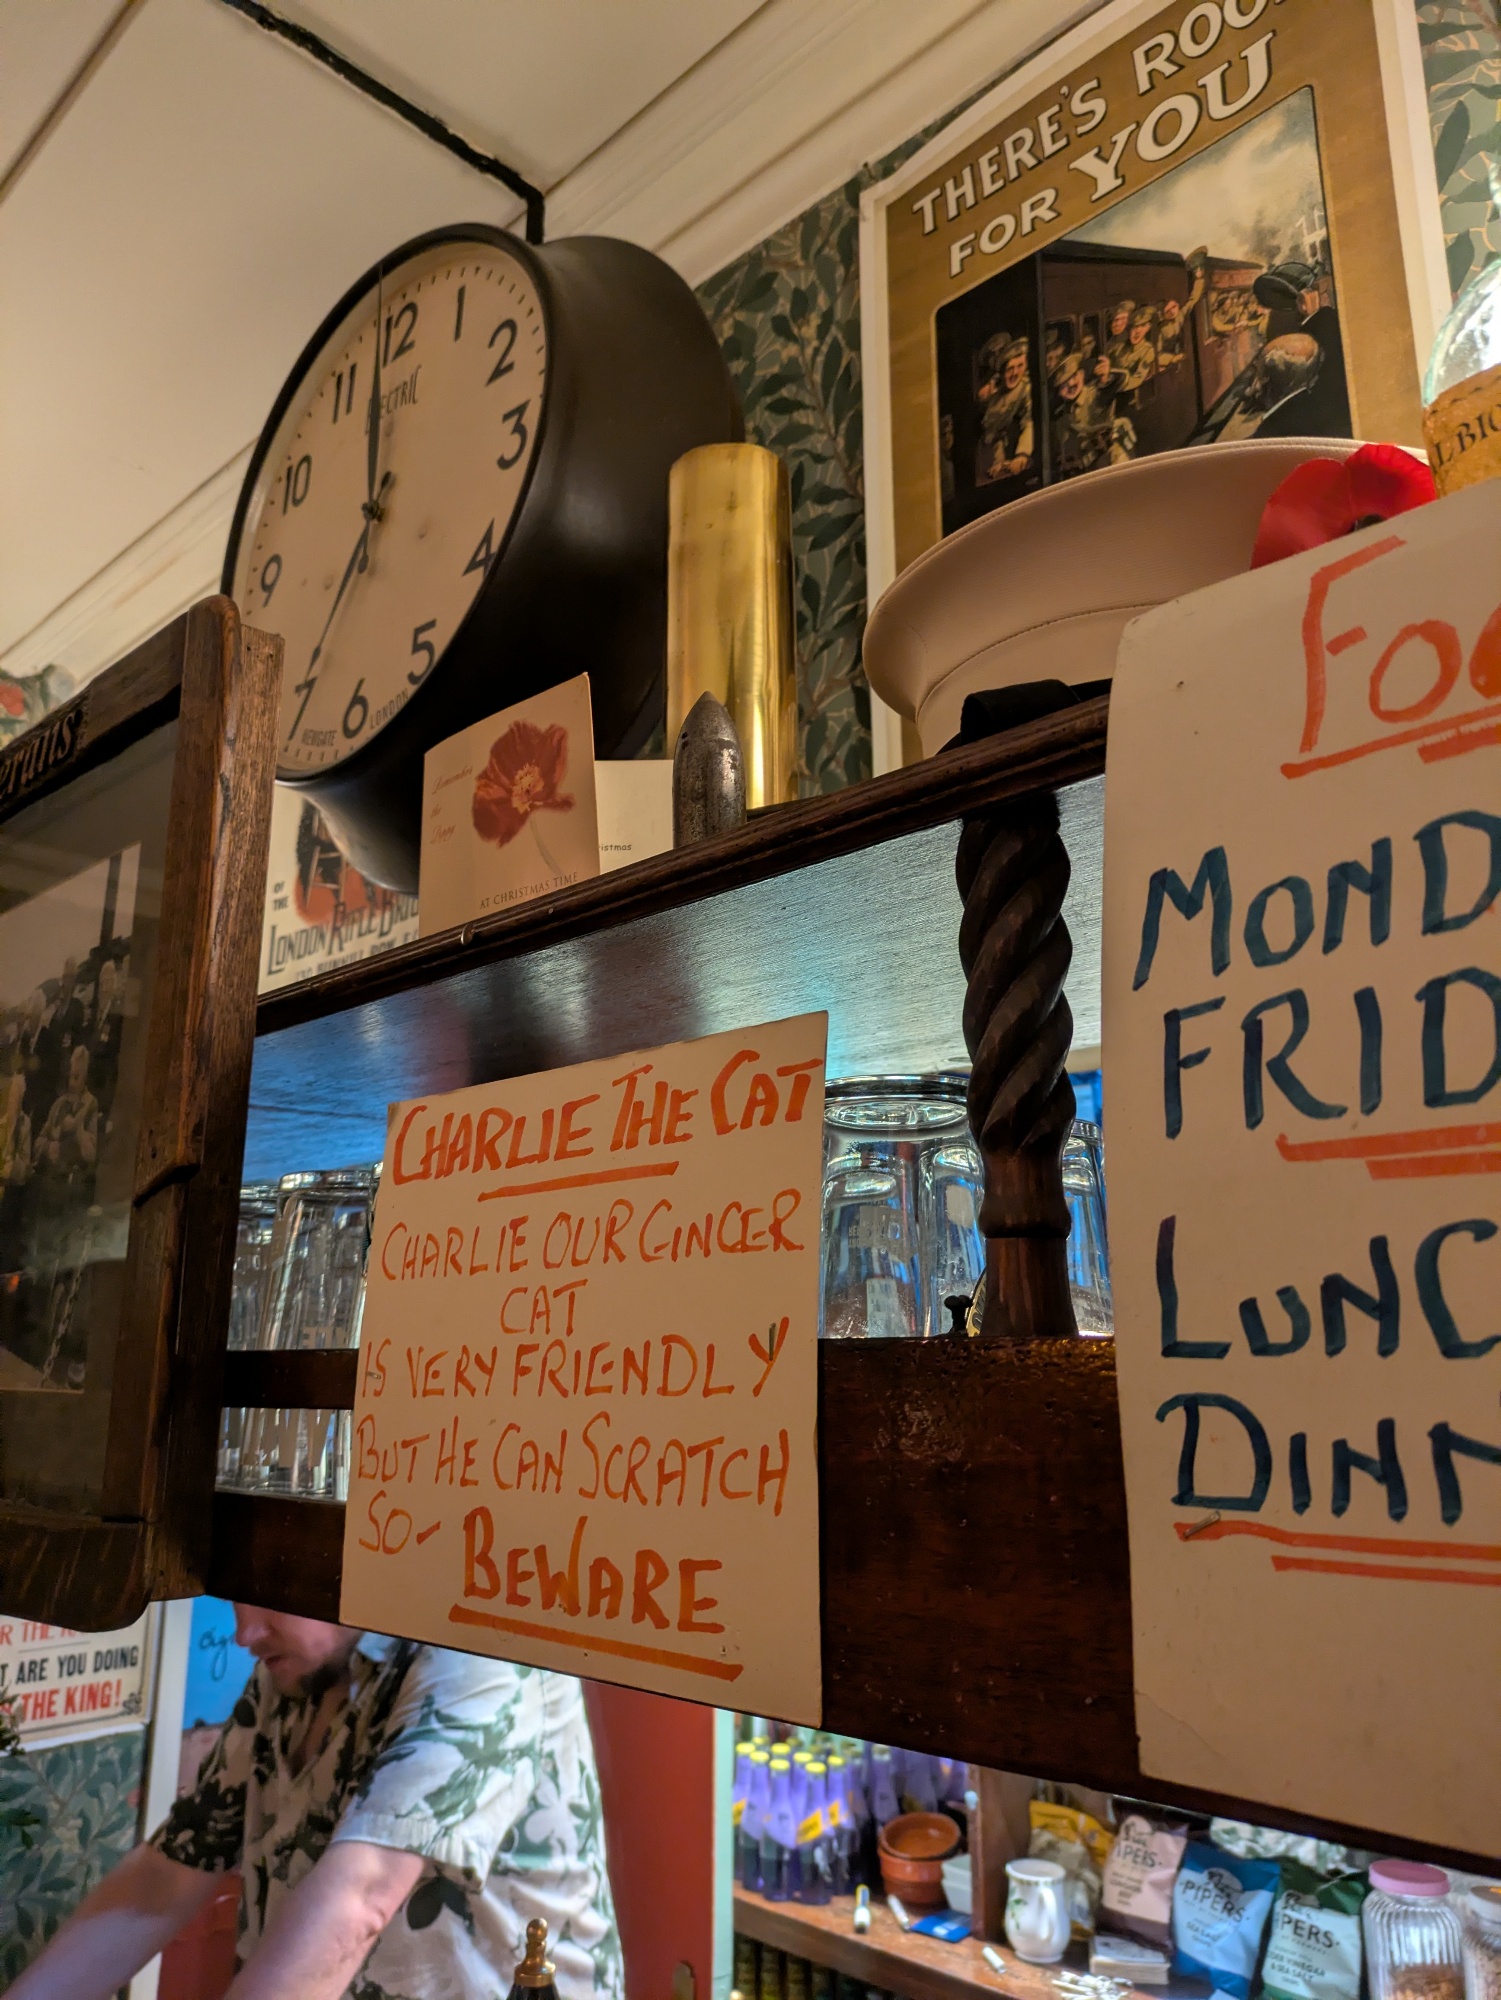 THERE'S ROOM
FOR YOU
12
1
2
3
4
5
6
7
9
10
11
ELECTRIC
NEWGATE
LONDON
Remember
the
Poppy
AT CHRISTMAS TIME
istmas
OF
THE
LONDON RIFLE BRIG
CHARLIE THE CAT
CHARLIE OUR GINGER
CAT
IS VERY FRIENDLY
BUT HE CAN SCRATCH
SO- BEWARE
Foo
MOND
FRID
LUNC
DINN
ALBIO
R THE
T ARE YOU DOING
THE KING!
PIPERS
PIPERS
SEA SALT
PIPERS
VINEGAR
& SEA SALT